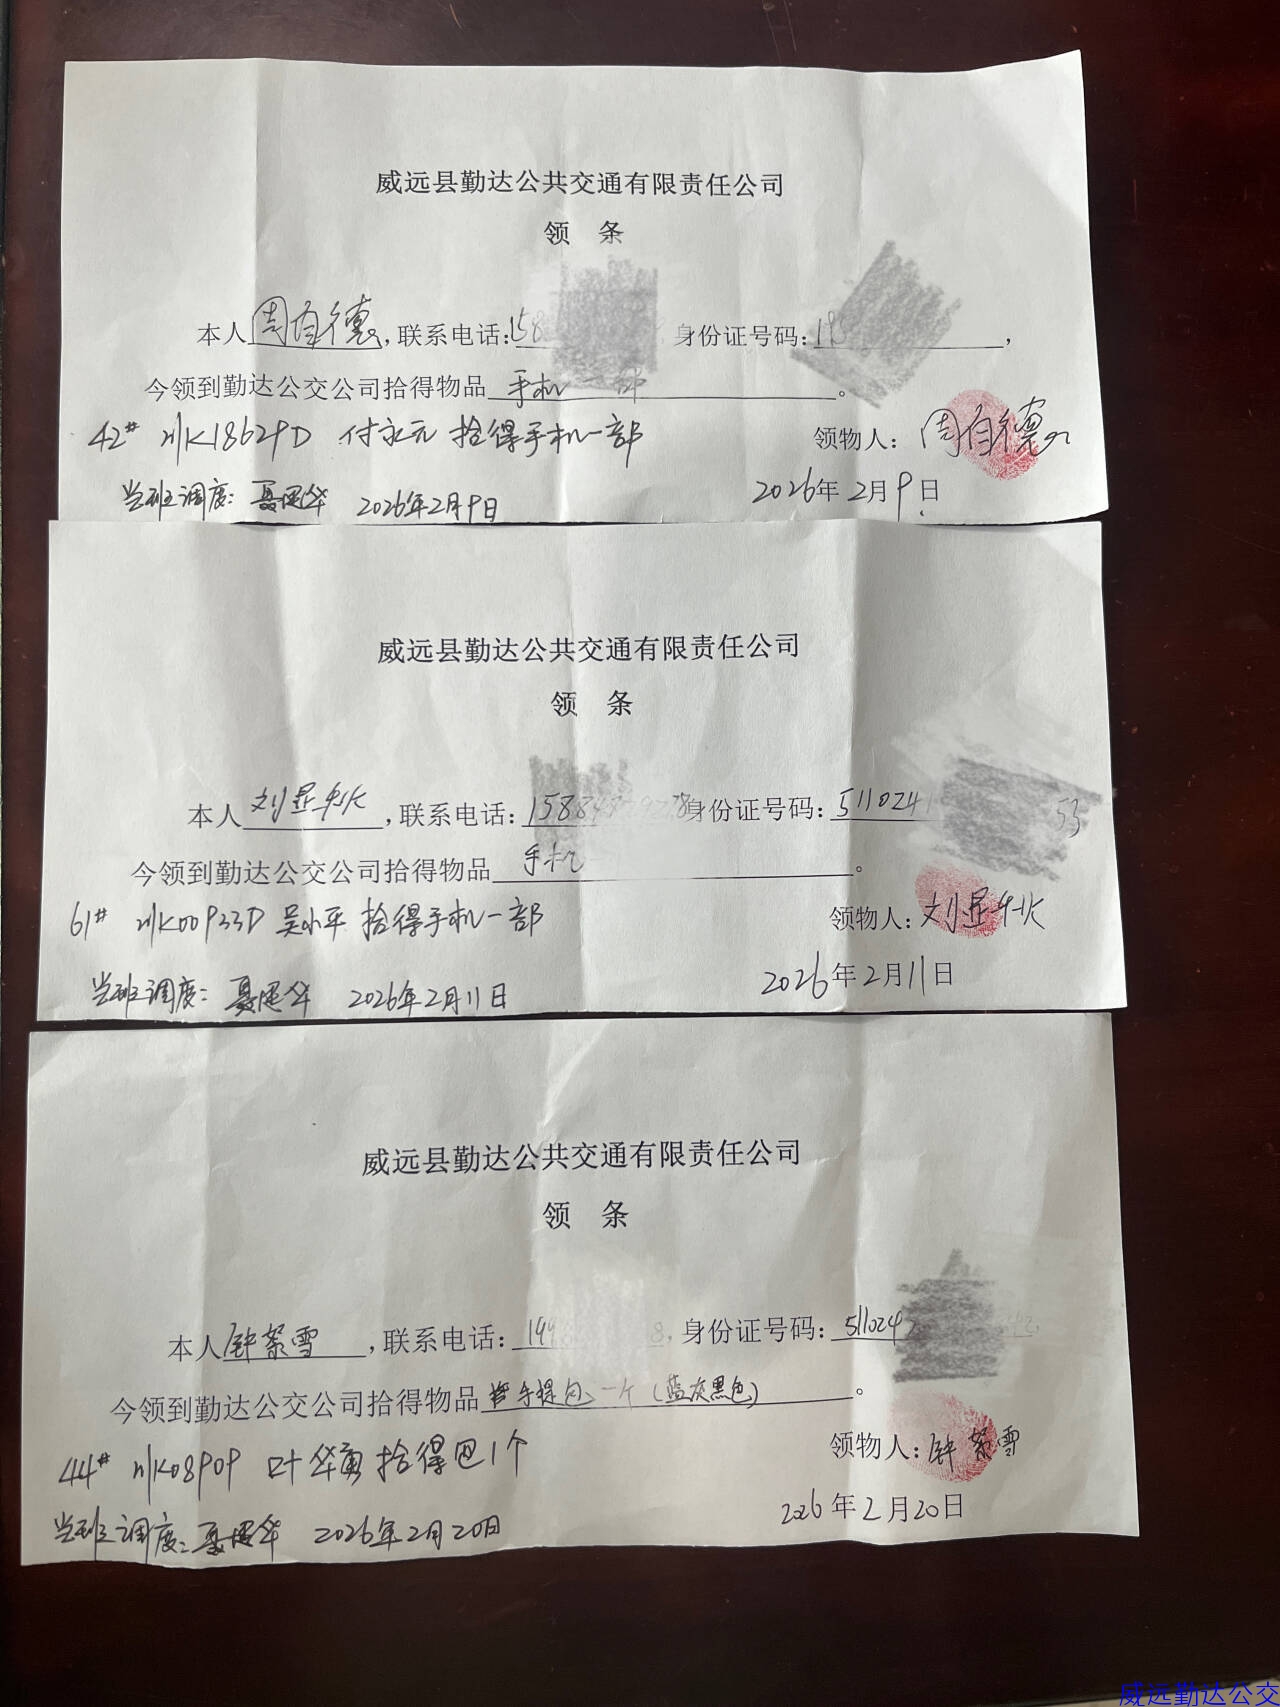 威远县勤达公共交通有限责任公司
领 条
本人周自德,联系电话:158 身份证号码:
今领到勤达公交公司拾得物品手机一部。
42# 川K18629D 付永元 拾得手机一部 领物人：周自德
当班调度： 2026年2月9日 2026年2月9日
威远县勤达公共交通有限责任公司
领 条
本人刘显秋,联系电话:15884 身份证号码:511024 53
今领到勤达公交公司拾得物品手机。
61# 川K00933D 吴小平 拾得手机一部 领物人：刘显秋
当班调度： 2026年2月11日 2026年2月11日
威远县勤达公共交通有限责任公司
领 条
本人钟 雪,联系电话: 8,身份证号码:511024
今领到勤达公交公司拾得物品手提包一个(蓝灰黑色)。
44# 川K08909 叶华勇 拾得包1个 领物人：钟 雪
当班调度： 2026年2月20日 2026年2月20日
威远勤达公交